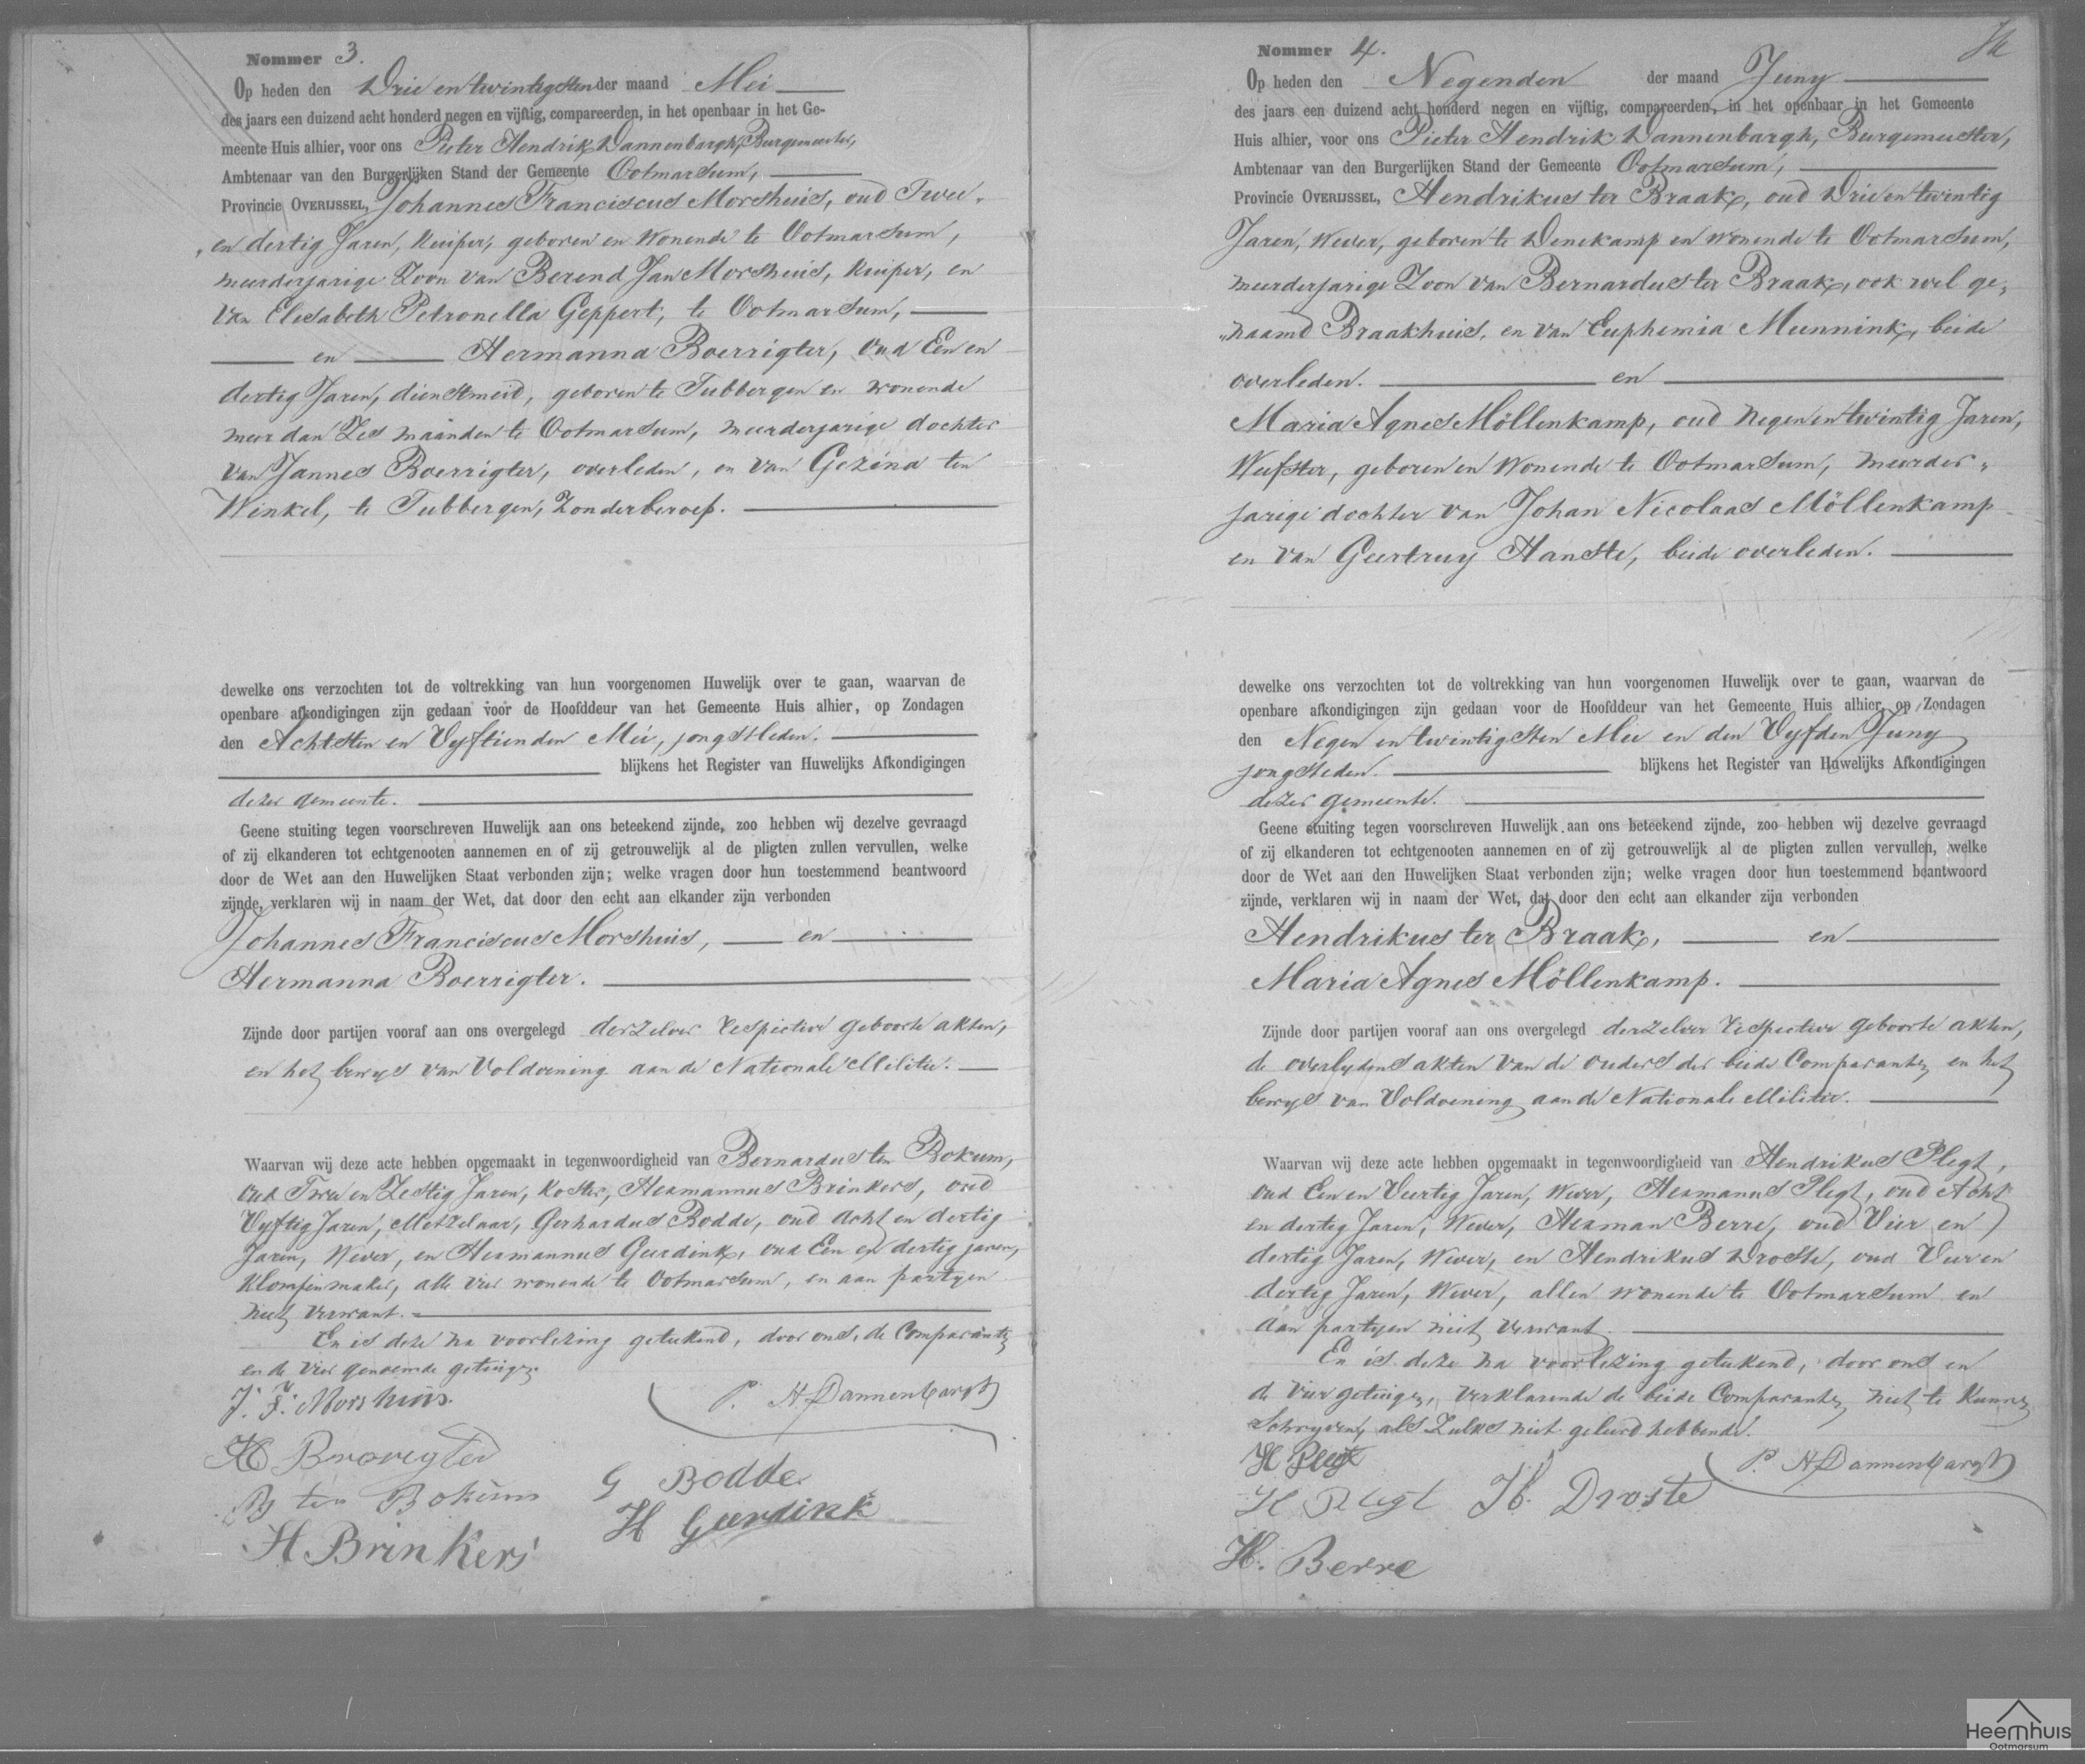 Nommer 3.
Op heden den Drie en twintigsten der maand Mei
des jaars een duizend acht honderd negen en vijftig, compareerden, in het openbaar in het Ge-
meente Huis alhier, voor ons Pieter Hendrik Dannenbargh, Burgemeester,
Ambtenaar van den Burgerlijken Stand der Gemeente Ootmarsum,
Provincie OVERIJSSEL, Johannes Franciscus Morshuis, oud Twee-
en dertig Jaren, Kuiper, geboren en wonende te Ootmarsum,
meerderjarige Zoon van Berend Jan Morshuis, Kuiper, en
van Elisabeth Petronella Geppert, te Ootmarsum,
en Hermanna Boerrigter, oud Een en
dertig Jaren, dienstmeid, geboren te Tubbergen en wonende
meer dan Zes maanden te Ootmarsum, meerderjarige dochter
van Jannes Boerrigter, overleden, en van Gezina ten
Winkel, te Tubbergen, Zonder beroep.
dewelke ons verzochten tot de voltrekking van hun voorgenomen Huwelijk over te gaan, waarvan de
openbare afkondigingen zijn gedaan voor de Hoofddeur van het Gemeente Huis alhier, op Zondagen
den Achtsten en Vyftienden Mei, jongstleden.
blijkens het Register van Huwelijks Afkondigingen
dezer gemeente.
Geene stuiting tegen voorschreven Huwelijk aan ons beteekend zijnde, zoo hebben wij dezelve gevraagd
of zij elkanderen tot echtgenooten aannemen en of zij getrouwelijk al de pligten zullen vervullen, welke
door de Wet aan den Huwelijken Staat verbonden zijn; welke vragen door hun toestemmend beantwoord
zijnde, verklaren wij in naam der Wet, dat door den echt aan elkander zijn verbonden
Johannes Franciscus Morshuis, en
Hermanna Boerrigter.
Zijnde door partijen vooraf aan ons overgelegd derzelver respective geboorte akten,
en het bewys van Voldoening aan de Nationale Militie.
Waarvan wij deze acte hebben opgemaakt in tegenwoordigheid van Bernardus ten Bokum,
oud Twee en Zestig Jaren, Koster, Hermannus Brinkers, oud
Vyftig Jaren, Metzelaar, Gerhardus Bodde, oud acht en dertig
Jaren, Wever, en Hermannus Geerdink, oud Een en dertig jaren,
Klompenmaker, alle vier wonende te Ootmarsum, en aan partyen
niet verwant.
En is deze na voorlezing geteekend, door ons, de Comparanten
en de vier genoemde getuigen.
J. F. Morshuis.
P. H Dannenbargh
H Boerrigter
B ten Bokum
G Bodde
H Geerdink
H Brinkers
Nommer 4.
Op heden den Negenden der maand Juny
des jaars een duizend acht honderd negen en vijftig, compareerden, in het openbaar in het Gemeente
Huis alhier, voor ons Pieter Hendrik Dannenbargh, Burgemeester,
Ambtenaar van den Burgerlijken Stand der Gemeente Ootmarsum,
Provincie OVERIJSSEL, Hendrikus ter Braak, oud Drie en twintig
Jaren, Wever, geboren te Denekamp en wonende te Ootmarsum,
meerderjarige Zoon van Bernardus ter Braak, ook wel ge-
naamd Braakhuis, en van Euphemia Meunnink, beide
overleden. en
Maria Agnes Möllenkamp, oud Negen en twintig Jaren,
Weefster, geboren en wonende te Ootmarsum, meerder-
jarige dochter van Johan Nicolaas Möllenkamp
en van Geertruy Hanste, beide overleden.
dewelke ons verzochten tot de voltrekking van hun voorgenomen Huwelijk over te gaan, waarvan de
openbare afkondigingen zijn gedaan voor de Hoofddeur van het Gemeente Huis alhier, op Zondagen
den Negen en twintigsten Mei en den Vyfden Juny
jongstleden. blijkens het Register van Huwelijks Afkondigingen
dezer gemeente.
Geene stuiting tegen voorschreven Huwelijk aan ons beteekend zijnde, zoo hebben wij dezelve gevraagd
of zij elkanderen tot echtgenooten aannemen en of zij getrouwelijk al de pligten zullen vervullen, welke
door de Wet aan den Huwelijken Staat verbonden zijn; welke vragen door hun toestemmend beantwoord
zijnde, verklaren wij in naam der Wet, dat door den echt aan elkander zijn verbonden
Hendrikus ter Braak, en
Maria Agnes Möllenkamp.
Zijnde door partijen vooraf aan ons overgelegd derzelver respective geboorte akten,
de overlydens akten van de ouders der beide Comparanten, en het
bewys van Voldoening aan de Nationale Militie.
Waarvan wij deze acte hebben opgemaakt in tegenwoordigheid van Hendrikus Plegt,
oud Een en Veertig Jaren, Wever, Hermanus Plegt, oud Acht
en dertig Jaren, Wever, Herman Berre, oud Vier en
dertig Jaren, Wever, en Hendrikus Droste, oud Vier en
dertig Jaren, Wever, allen wonende te Ootmarsum en
aan partyen niet verwant.
En is deze na voorlezing geteekend, door ons en
de vier getuigen, verklarende de beide Comparanten niet te kunnen
Schryven, als Zulks niet geleerd hebbende.
H Plegt
P. H Dannenbargh
H Plegt H. Droste
H. Berre
Heemhuis
Ootmarsum